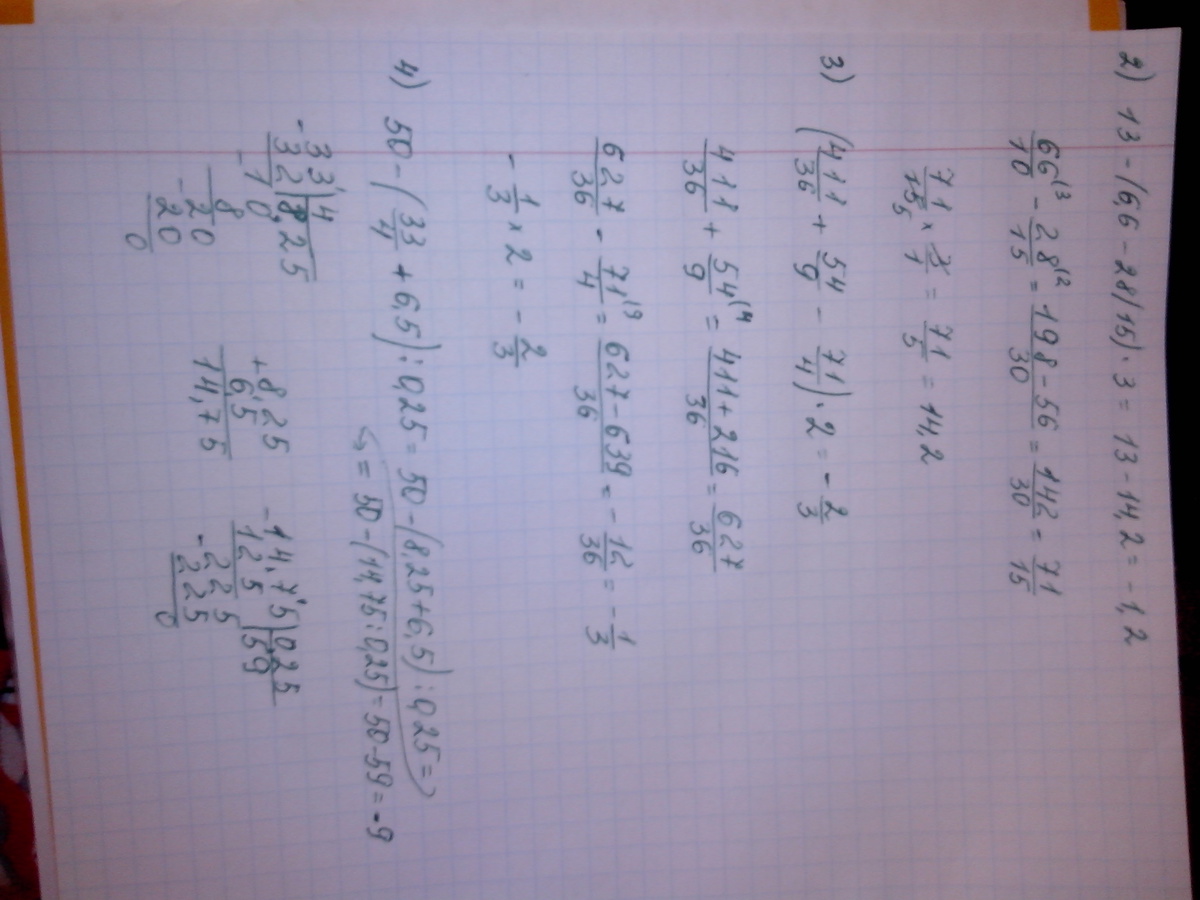 2) 13 - (6,6 - 28/15) · 3 = 13 - 14,2 = -1,2
66/10 (3 - 28/15 (2 = 198-56/30 = 142/30 = 71/15
71/15 5 × 3/1 = 71/5 = 14,2
3) (411/36 + 54/9 - 71/4) · 2 = - 2/3
411/36 + 54/9 (4 = 411+216/36 = 627/36
627/36 - 71/4 (9 = 627-639/36 = - 12/36 = - 1/3
- 1/3 × 2 = - 2/3
4) 50 - (33/4 + 6,5) : 0,25 = 50 - (8,25+6,5) : 0,25 =
= 50 - (14,75 : 0,25) = 50-59 = -9
-33, 4
32 8,25
-10
8
-20
20
0
+8,25
6,5
14,75
-14,75 0,25
125 59
-225
225
0